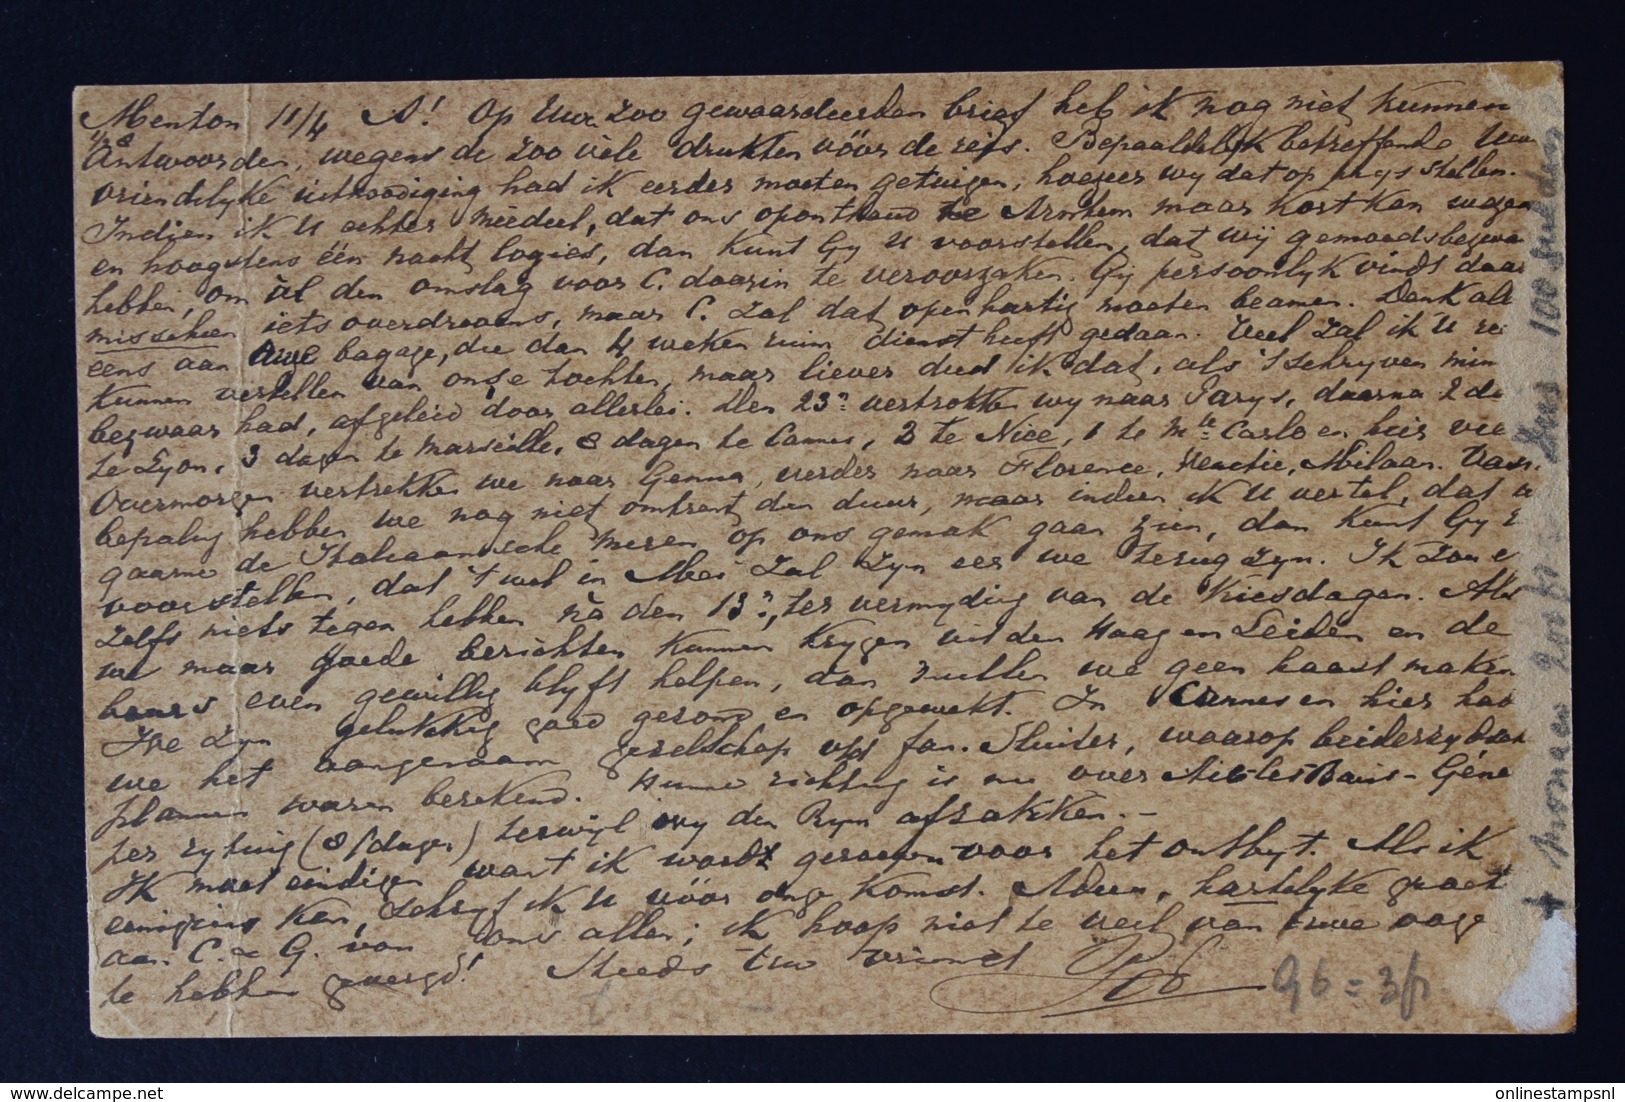 Menton 11/4 A! Op Uw zoo gewaardeerden brief heb ik nog niet kunnen
Antwoorden, wegens de zoo vele drukten vóór de reis. Bepaaldelyk betreffende Uwe
vriendelyke uitnoodiging had ik eerder moeten getuigen, hoezeer wy dat op prys stellen.
Indien ik U echter meedeel, dat ons oponthoud te Arnhem maar kort kan wezen
en hoogstens één nacht logies, dan kunt Gy U voorstellen, dat wij gemoedsbezwa
hebben, om àl den omslag voor C. daarin te veroorzaken. Gy persoonlyk vindt daar
misschien iets overdrevens, maar C. zal dat openhartig moeten beamen. Denk alt
eens aan onze bagage, die dan 4 weken ruim dienst heeft gedaan. Veel zal ik U
kunnen vertellen van onze tochten, maar liever deed ik dat, als 't schryven min
bezwaar had, afgeleid door allerlei. Den 23n vertrokken wy naar Parys, daarna 2 da
te Lyon, 3 dagen te Marseille, 8 dagen te Cannes, 3 te Nice, 1 te Mte Carlo en hier vee
Overmorgen vertrekken we naar Genua, verder naar Florence, Venetië, Milaan. Vas
bepaling hebben we nog niet omtrent den duur, maar indien ik U vertel, dat
gaarne de Italiaansche meren op ons gemak gaan zien, dan kunt Gy
voorstellen, dat 't wel in Mei zal zyn eer we terug zyn. Ik zou
zelfs niets tegen hebben nà den 13n, ter vermyding van de Kiesdagen. Als
we maar goede berichten kunnen krygen uit den Haag en Leiden en de
beurs even gewillig blyft helpen, dan zullen we geen haast maken
We zyn gelukkig goed gezond en opgewekt. In Cannes en hier had
we het aangenaam gezelschap v/d fam. Sluiter, waarop beiderzyds
plannen waren berekend. Hunne richting is nu over Aix les Bains - Génè
per rytuig (8 dagen) terwyl wy den Ryn afzakken. -
Ik moet eindigen want ik wordt geroepen voor het ontbyt. Als ik
eenigzins kan, schryf ik U vóór onze komst. Adieu, hartelyke groet
aan C. & G. van ons allen; ik hoop niet te veel van Uwe oogen
te hebben gevergd! Steeds Uw vriend
96 = 3fr
onlinestampsnl